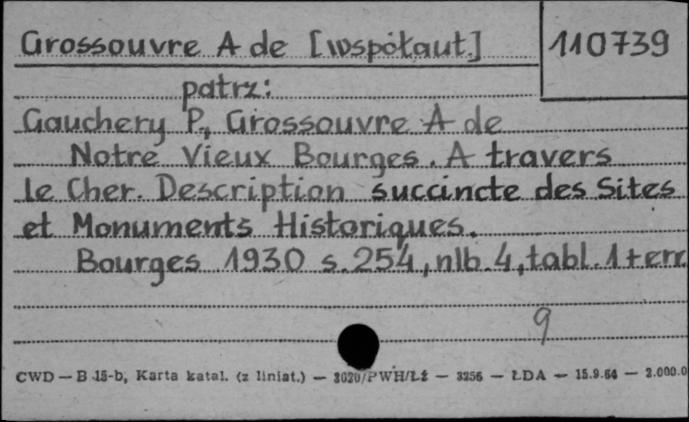 Grossouvre A de [współaut.] 110739
patrz:
Gauchery P., Grossouvre A de
Notre Vieux Bourges. A travers
le Cher. Description succincte des Sites
et Monuments Historiques.
Bourges 1930 s. 254, nlb. 4, tabl. 1 +
9
CWD — B 15-b, Karta katal. (z liniat.) — 3020/PWH/Łż — 3256 — ŁDA — 15.9.64 — 2.000.0